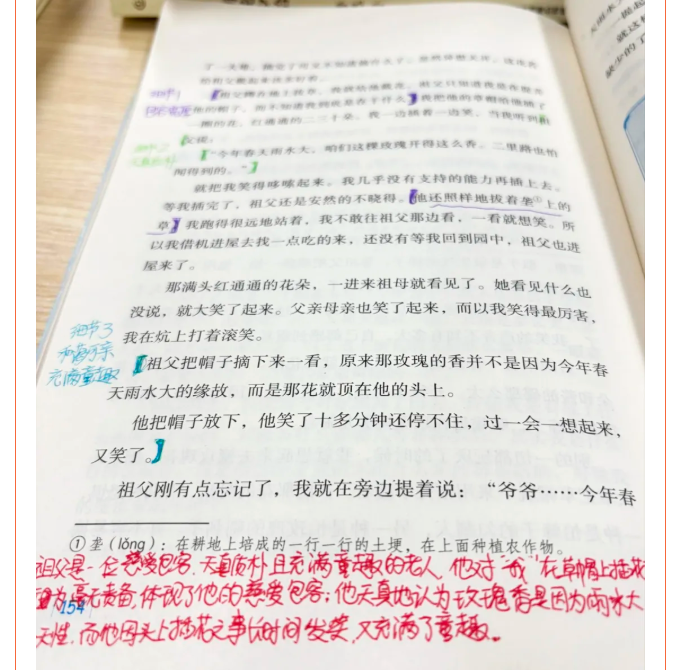 了一大堆，
祖父蹲在地上拔草，我就给他戴花，祖父只知道我是在捉光
他的帽子，而不知道我到底是在干什么。我把他的草帽给他插了
一圈的花，红通通的二三十朵。我一边插着一边笑，当我听到祖
父说：
“今年春天雨水大，咱们这棵玫瑰开得这么香。二里路也怕
闻得到的。”
就把我笑得哆嗦起来。我几乎没有支持的能力再插上去。
等我插完了，祖父还是安然的不晓得。他还照样地拔着垄①上的
草。我跑得很远地站着，我不敢往祖父那边看，一看就想笑。所
以我借机进屋去找一点吃的来，还没有等我回到园中，祖父也进
屋来了。
那满头红通通的花朵，一进来祖母就看见了。她看见什么也
没说，就大笑了起来。父亲母亲也笑了起来，而以我笑得最厉害，
我在炕上打着滚笑。
细节3
和蔼可亲
充满童趣
祖父把帽子摘下来一看，原来那玫瑰的香并不是因为今年春
天雨水大的缘故，而是那花就顶在他的头上。
他把帽子放下，他笑了十多分钟还停不住，过一会一想起来，
又笑了。
祖父刚有点忘记了，我就在旁边提着说：“爷爷……今年春
①垄（lǒng）：在耕地上培成的一行一行的土埂，在上面种植农作物。
祖父是一位慈爱包容、天真质朴且充满童趣的老人，他对“我”在草帽上插花
为毫无责备，体现了他的慈爱包容；他天真地认为玫瑰香是因为雨水大
154
而他因头上插花之事长时间发笑，又充满了童趣。